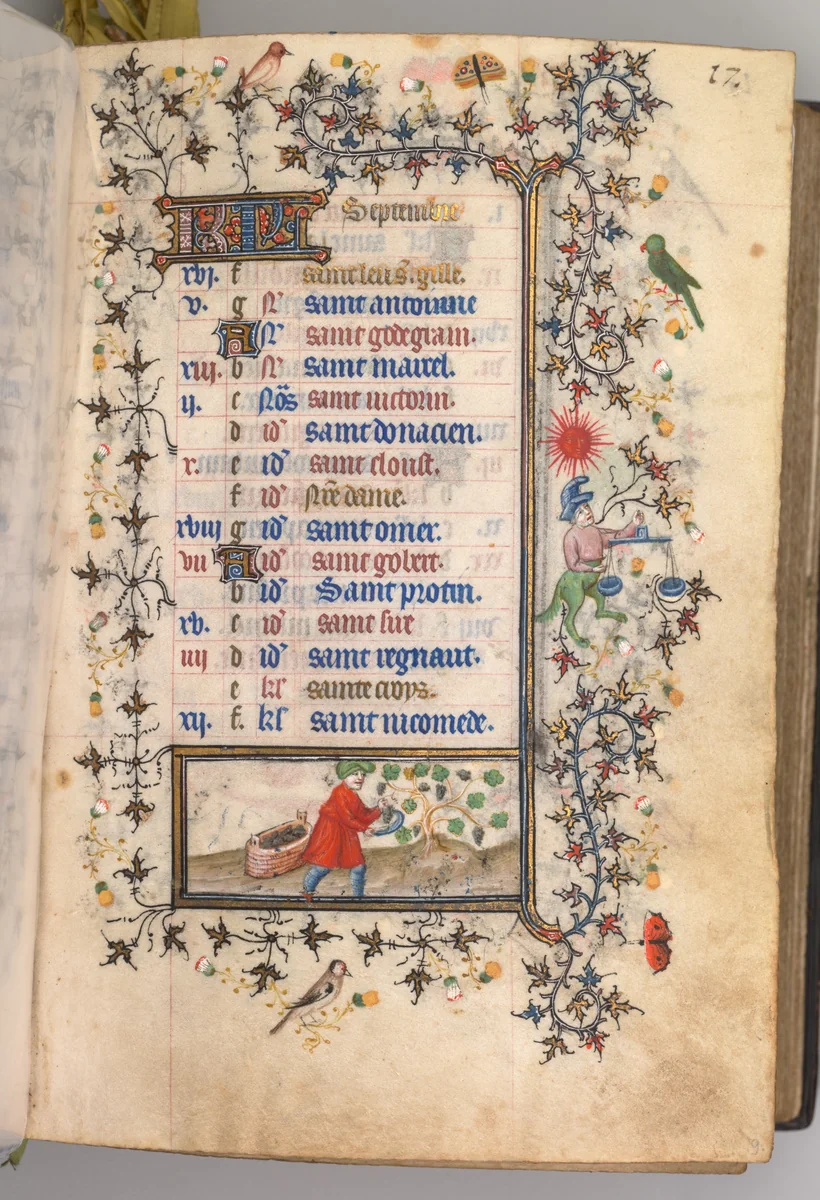 17.
KL Septembre
xvi. f saint leu s. gille.
v. g N saint antoinne
A N saint godegrain.
xiii. b N saint marcel.
ii. c Nōs saint victorin.
d id' saint donacien.
x. e id' saint cloust.
f id' Nr̄e dame.
xviii g id' saint omer.
vii A id' saint gobert.
b id' Saint protin.
xv. c id' saint sire
iiii d id' saint regnaut.
e kl' sainte croys.
xii. f. kl' saint nicomede.
9